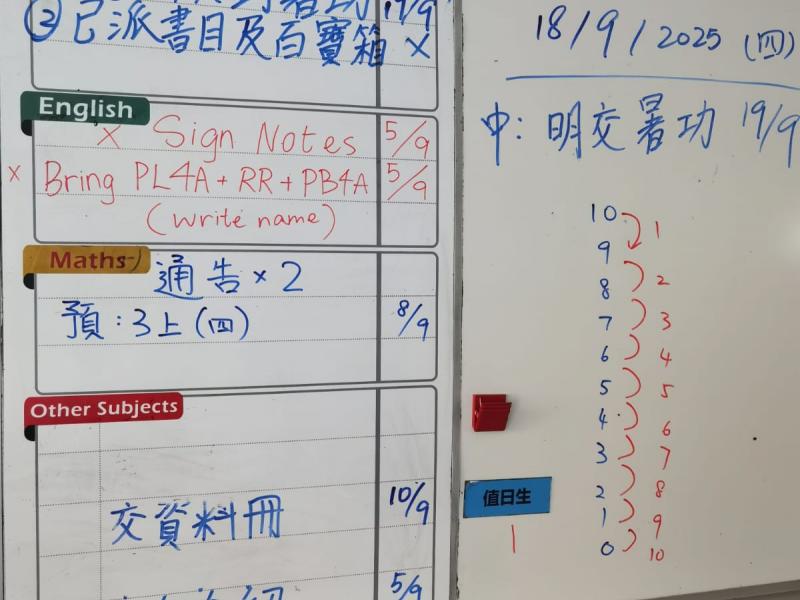 19/9
② 已派書目及百寶箱 ×
English
× Sign Notes 5/9
× Bring PL4A + RR + PB4A 5/9
(write name)
Maths
通告 × 2
預：3上 (四) 8/9
Other Subjects
交資料冊 10/9
5/9
18/9/2025 (四)
中: 明交暑功 19/9
10
1
9
2
8
3
7
4
6
5
5
6
4
7
3
8
2
9
1
10
0
值日生
1